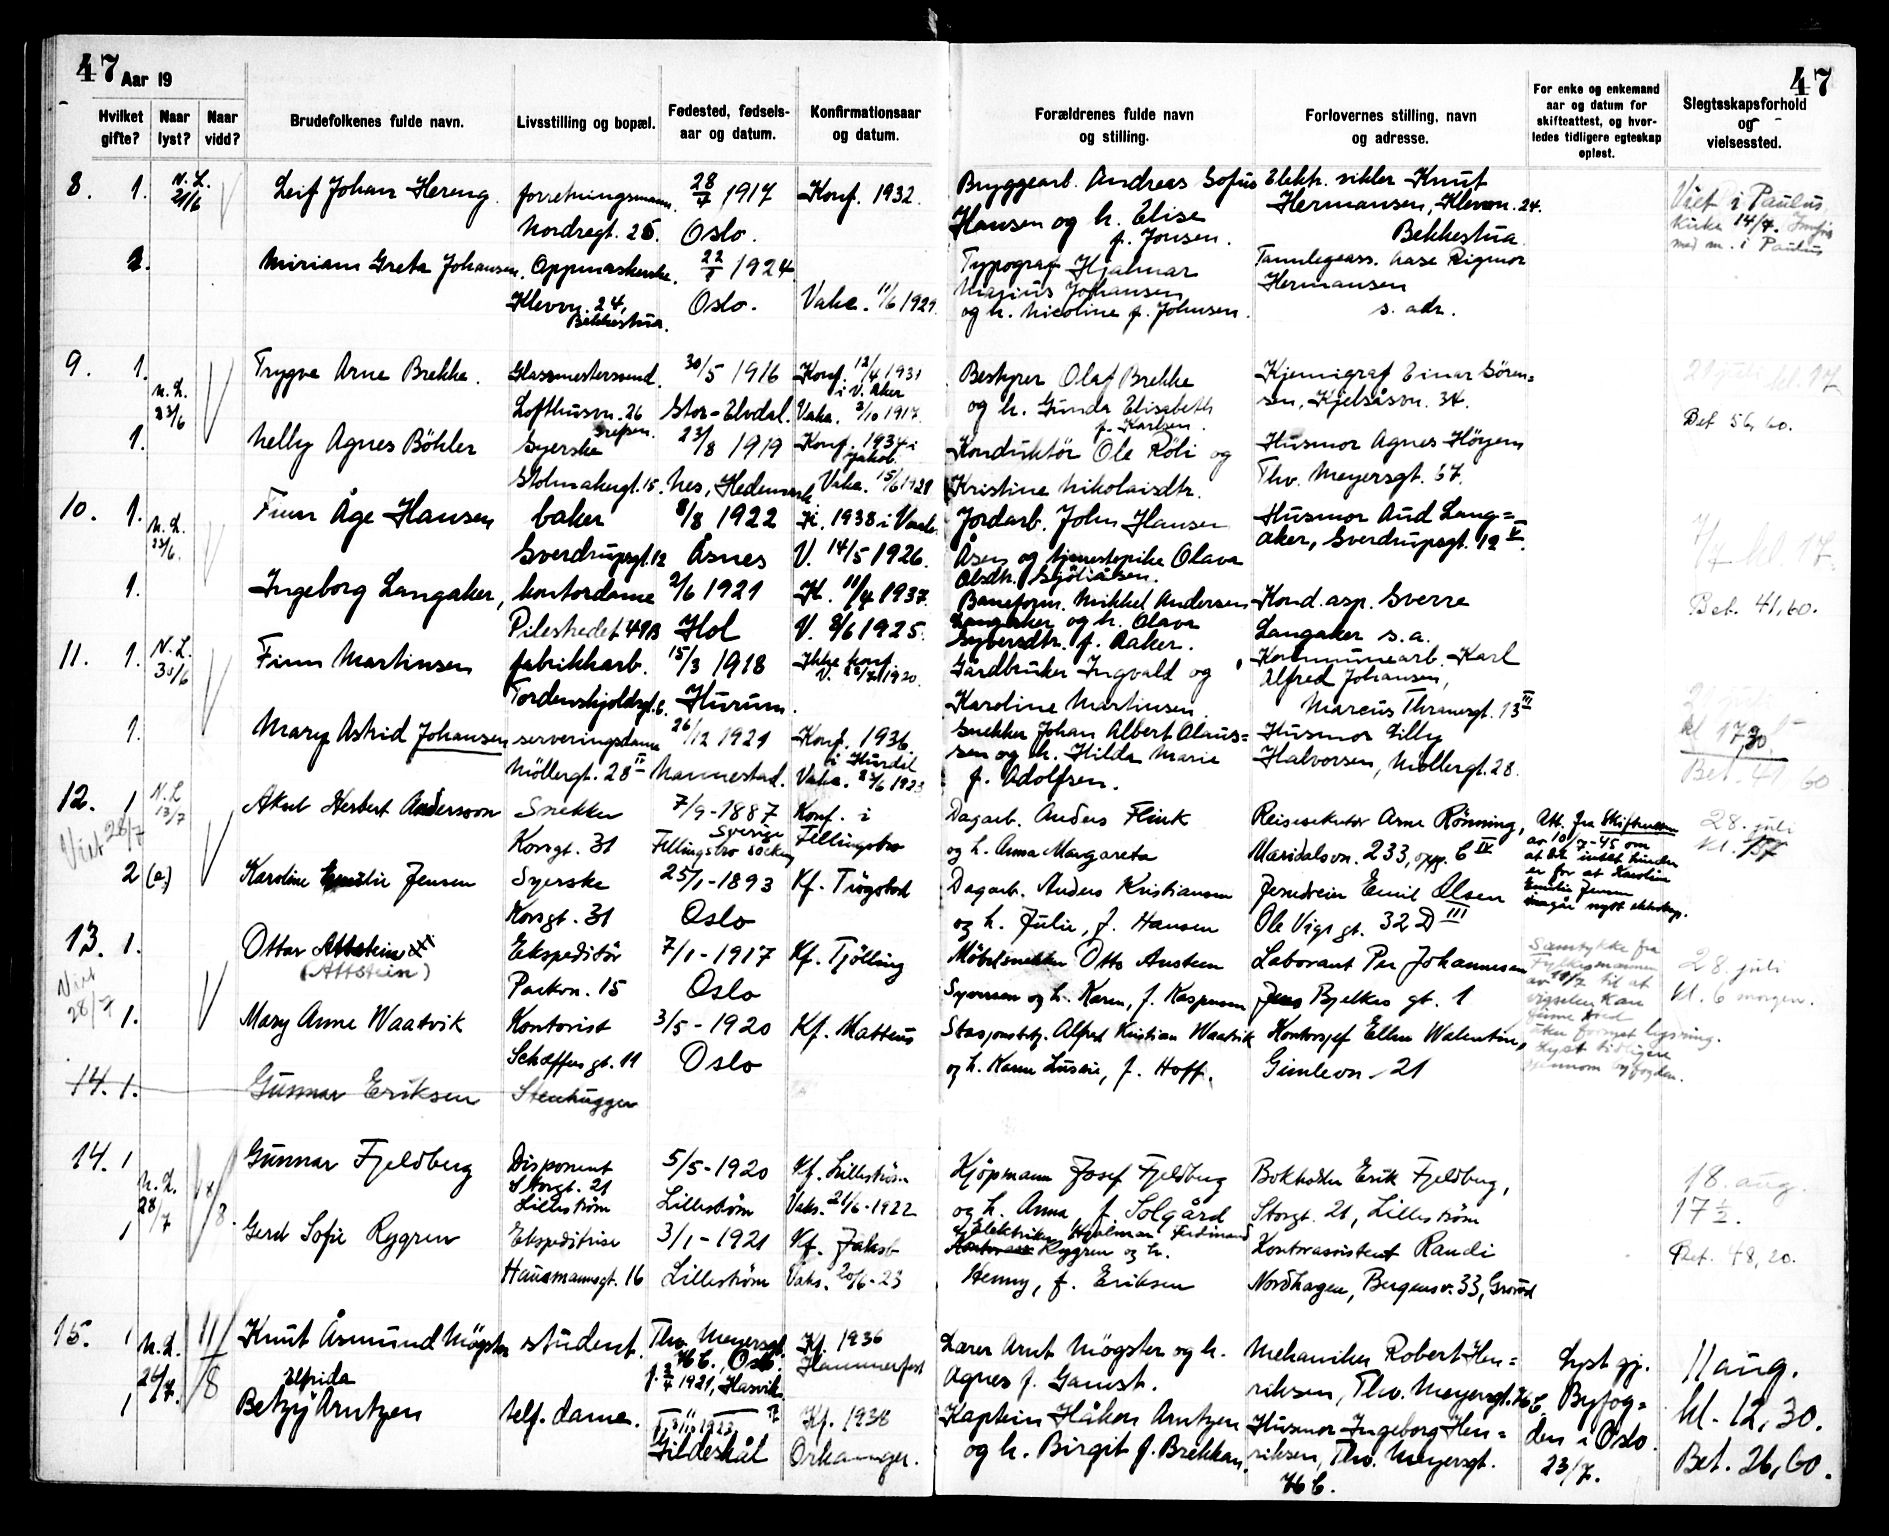 47 Aar 19
47
Hvilket gifte?
Naar lyst?
Naar vidd?
Brudefolkenes fulde navn.
Livsstilling og bopæl.
Fødested, fødsels-
aar og datum.
Konfirmationsaar
og datum.
Forældrenes fulde navn
og stilling.
Forlovernes stilling, navn
og adresse.
For enke og enkemand
aar og datum for
skifteattest, og hvor-
ledes tidligere egteskap
opløst.
Slegtsskapsforhold
og
vielsessted.
8. 1. N.L. 21/6 Leif Johan Hereng. forretningsmann. 28/7 1917 Konf. 1932. Bryggearb. Andreas Sofus Elektr. vikler Knut
Nordregt. 26. Oslo. Hansen og h. Elise Hermansen, Klevvn. 24.
f. Jonsen. Bekkestua.
Viet i Paulus
Kirke 14/7.
med m. i Paulus
1. Miriam Greta Johansen. Oppmerkerske. 22/8 1924 Typograf Hjalmar Tannlegeass. Aase Rigmor
Klevvn. 24, Oslo. Vaks. 11/6 1929. Marius Johansen Hermansen
Bekkestua. og h. Nicoline f. Johnsen. s. adr.
9. 1. N.L. 23/6 Trygve Arne Brekke. Glassmestersvend. 30/5 1916 Konf. 12/4 1931 Bestyrer Olaf Brekke Kjemigraf Einar Sören=
i V. Aker
Lofthusvn. 26 Stor-Elvdal. Vaks. 3/10 1917. og h. Gunda Elisabeth sen, Kjelsåsvn. 34.
Grefsen. f. Karlsen.
kl. 17
Bet 56,60.
1. Nelly Agnes Böhler Syerske 23/8 1919 Konf. 1934 i Konduktör Ole Röli og Husmor Agnes Höyem
Jakob.
Stolmakergt. 15. Nes, Hedemark Vaks. 15/6 1928 Kristine Nikolaisdtr. Thv. Meyersgt. 67.
10. 1. N.L. 23/6. Finn Åge Hansen baker 8/8 1922 K. 1938 i Vaale Jordarb. John Hansen Husmor Aud Lang=
Sverdrupsgt. 12 Åsnes V. 14/5 1926. Åsen og tjenestepike Olava aker, Sverdrupsgt. 12 V.
Olsdtr. Sjöliåsen.
7/7 kl. 17.
1. Ingeborg Langaker, kontordame 2/6 1921 K. 11/4 1937. Baneform. Mikkel Andersen Kond. asp. Sverre
Pilestredet 49B Hol V. 8/6 1925. Langaker og h. Olava Langaker s.a.
Syversdtr. f. Aaker.
Bet. 41,60.
11. 1. N.L. 30/6 Finn Martinsen fabrikkarb. 15/3 1918 Ikke konf. Gårdbruker Ingvald og Kommunearb. Karl
V. 28/7 1920.
Tordenskjoldsgt. 6. Hurum. Karoline Martinsen. Alfred Johansen,
Marcus Thranesgt. 13 III
1. Mary Astrid Johansen serveringsdame 26/12 1921 Konf. 1936. Snekker Johan Albert Claus= Husmor Lilly
i Hurdal
Möllergt. 28 II Nannestad. Vaks. 23/6 1923 sen og h. Hilda Marie Halvorsen, Möllergt. 28.
f. Adolfsen.
kl 1730.
Bet. 41,60
12. 1 N.L 13/7 Aksel Herbert Andersson Snekker 7/9-1887 Konf. i Dagarb. Anders Flink Reisesekretær Arne Rönning,
Viet 28/7
Korsgt. 31 Sverige Fellingsbro socken Fellingsbro og h. Anna Margareta Maridalsvn. 233, opp. C IV
Att. fra Skifteretten
av 10/7-45 om
at det intet hinder
er for at Karoline
Emilie Jensen
inngår nytt ekteskap.
28. juli
kl.
2 (e) Karoline Emilie Jensen Syerske 25/1-1893 Kf. Trögstad Dagarb. Anders Kristiansen Jerndreier Emil Olsen
Korsgt. 31 Oslo og h. Julie, f. Hansen Ole Vigs gt. 32 D III
13. 1. Ottar Attstein Ekspeditör 7/1-1917 Kf. Tjölling Möbelsnekker Otto Austeen Laborant Per Johannesen
Viet 28/7
(Attstein) Parkvn. 15 Oslo Syversen og h. Karen, f. Kaspersen Jens Bjelkes gt. 1
Samtykke fra
Fylkesmannen
av 19/7 til at
vigselen kan
finne sted
uten fornyet lysning.
Lyst tidligere
gjennom byfogden.
28. juli
kl. 6 morgen.
1. Mary Anne Waatvik Kontorist 3/5-1920 Kf. Matteus Stasjonsbetj. Alfred Kristian Waatvik Kontorsjef Ellen Walentin,
Scheffers gt. 11 Oslo og h. Karen Lusvie, f. Hoff. Gimlevn. 21
14. 1. Gunnar Eriksen Stenhugger
14. 1 N.L. 28/7 Gunnar Fjeldberg Disponent 5/5-1920 Kf. Lilleström Kjöpmann Josef Fjeldberg Bokholder Erik Fjeldberg,
Storgt. 21
Lilleström Lilleström Vaks. 21/6-1922 og h. Anna, f. Solgård Storgt. 21, Lilleström
18. aug.
17 1/2.
1 Gerd Sofie Rygren Ekspeditrise 3/1-1921 Kf. Jakob Elektriker Hjalmar Ferdinand Kontorassistent Randi
Rygren og h.
Hausmannsgt. 16 Lilleström Vaks. 20/6-23 Henny, f. Eriksen Nordhagen, Bergensv. 33, Grorud
Bet. 48,20.
15. 1 N.L. 26/7. 11/8 Knut Åsmund Mögster student. Thv. Meyersgt. Kf. 1936 Lærer Arnt Mögster og h. Mekaniker Robert Hen=
76 C., Oslo. Hammerfest
f. 2/4 1921, Hasvik. Agnes f. Gamst. riksen, Thv. Meyersgt. 76 C
Lyst gj.
Byfog=
den i Oslo.
23/7.
11 aug.
kl. 12,30.
Bet. 26,60.
Elfrida
1 Betzy Arntzen telf. dame. Kf. 1938 Kaptein Håkon Arntzen Husmor Ingeborg Hen=
Gildeskål Orkanger. og h. Birgit f. Brekkan. riksen, Thv. Meyersgt.
76 C.